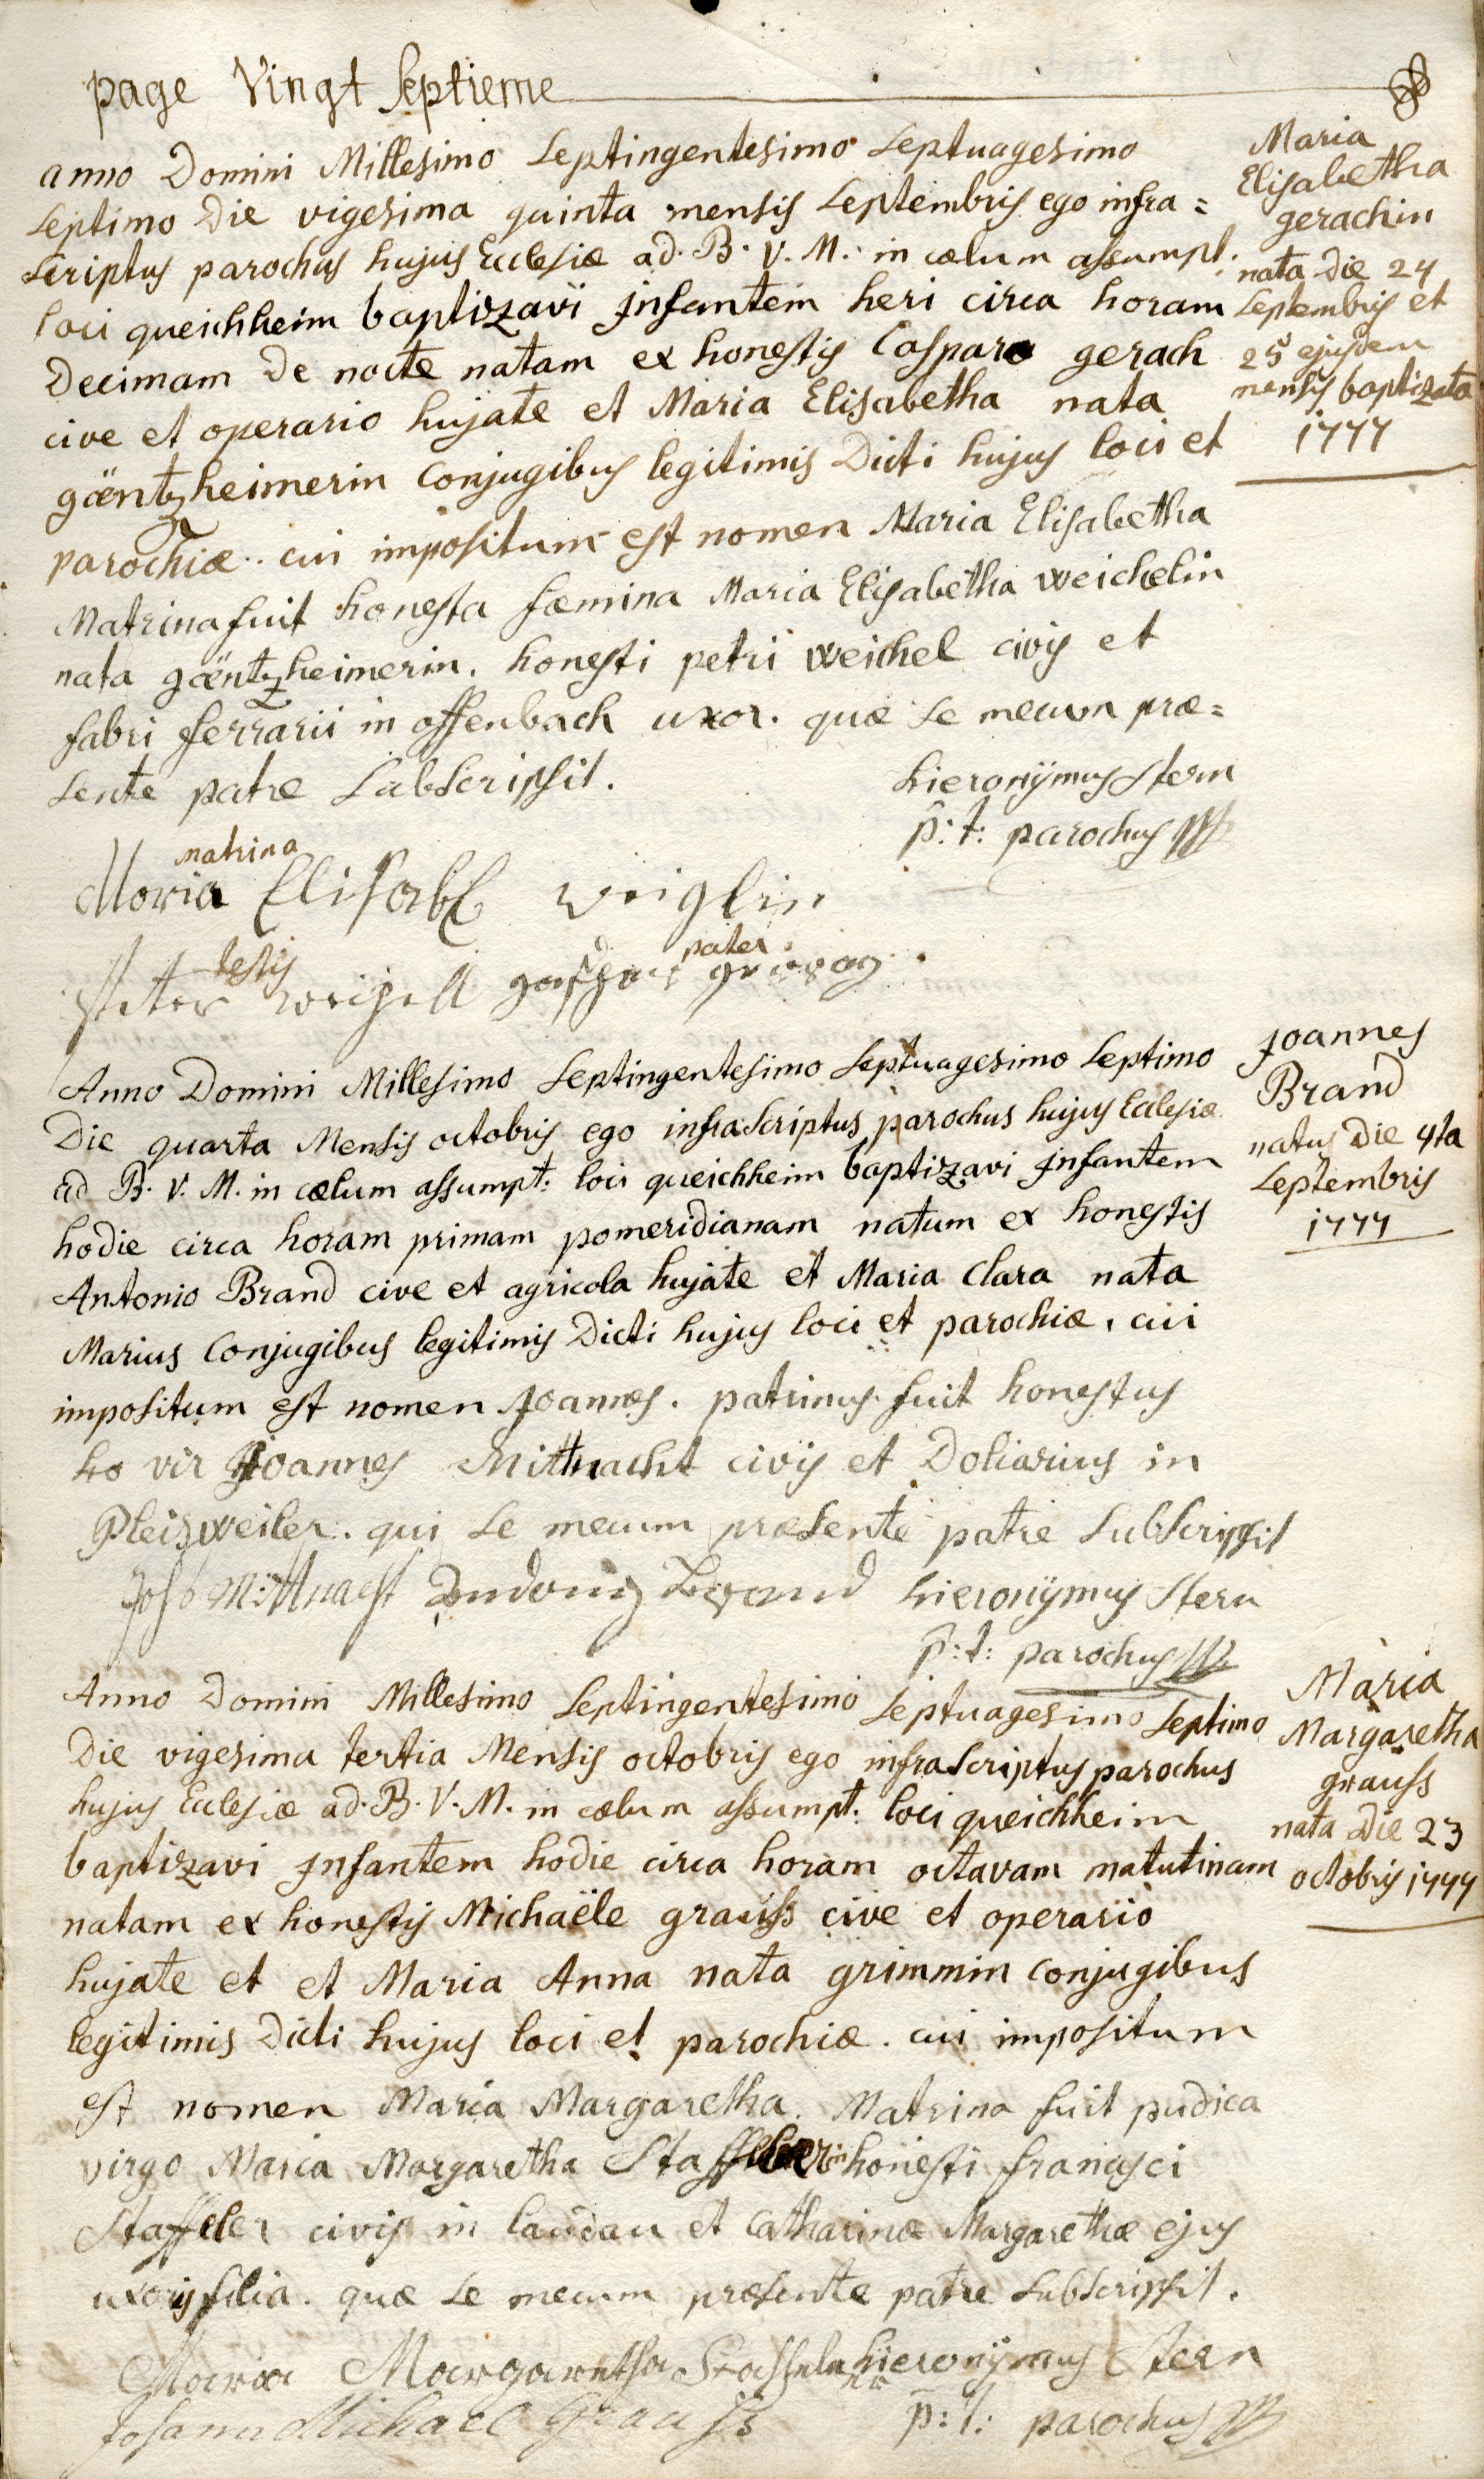 page Vingt septieme
anno Domini Millesimo septingentesimo septuagesimo
septimo Die vigesima quinta mensis septembris ego infra=
scriptus parochus hujus Ecclesiæ ad B. V. M. in cælum assumpt.
loci queichheim baptizavi jnfantem heri circa horam
Decimam De nocte natam ex honestis Casparo gerach
cive et operario hujate et Maria Elisabetha nata
gäntzheimerin Conjugibus legitimis Dicti hujus loci et
parochiæ. cui impositum est nomen Maria Elisabetha
Matrina fuit honesta fæmina Maria Elisabetha weichelin
nata gäntzheimerin. honesti petri weichel civis et
fabri ferrarii in offenbach uxor. quæ se mecum præ=
sente patre subscripsit.
hieronÿmus Stern
p: t: parochus
Maria
Elisabetha
gerachin
nata Die 24
septembris et
25 ejusdem
mensis baptizata
1777
matrina
Maria Elisabe weiglin
testis
pater
Peter weigell
Anno Domini Millesimo septingentesimo septuagesimo septimo
Die quarta Mensis octobris ego infrascriptus parochus hujus Ecclesiæ
ad B. V. M. in cælum assumpt: loci queichheim baptizavi jnfantem
hodie circa horam primam pomeridianam natum ex honestis
Antonio Brand cive et agricola hujate et Maria Clara nata
Marius Conjugibus legitimis Dicti hujus loci et parochiæ. cui
impositum est nomen Joannes. patrinus fuit honestus
ho vir Joannes Mittnacht civis et Doliarius in
Pleisweiler. qui se mecum præsente patre subscripsit
Joannes
Brand
natus Die 4ta
septembris
1777
Joh Mittnacht Andonÿ Brand hieronÿmus Stern
p: t: parochus
Anno Domini Millesimo septingentesimo septuagesimo septimo
Die vigesima tertia Mensis octobris ego infrascriptus parochus
hujus Ecclesiæ ad B. V. M. in cælum assumpt: loci queichheim
baptizavi jnfantem hodie circa horam octavam matutinam
natam ex honestis Michaële grauss cive et operario
hujate et et Maria Anna nata grimmin conjugibus
legitimis Dicti hujus loci et parochiæ. cui impositum
est nomen Maria Margaretha. Matrina fuit pudica
virgo Maria Margaretha honesti francisci
Staffeler civis in landau et Catharinæ Margarethæ ejus
uxoris filia. quæ se mecum præsente patre subscripsit.
Maria
Margaretha
grauss
nata Die 23
octobris 1777
Maria Margaretha hieronÿmus Stern
Johann Michael Grauss p: t: parochus